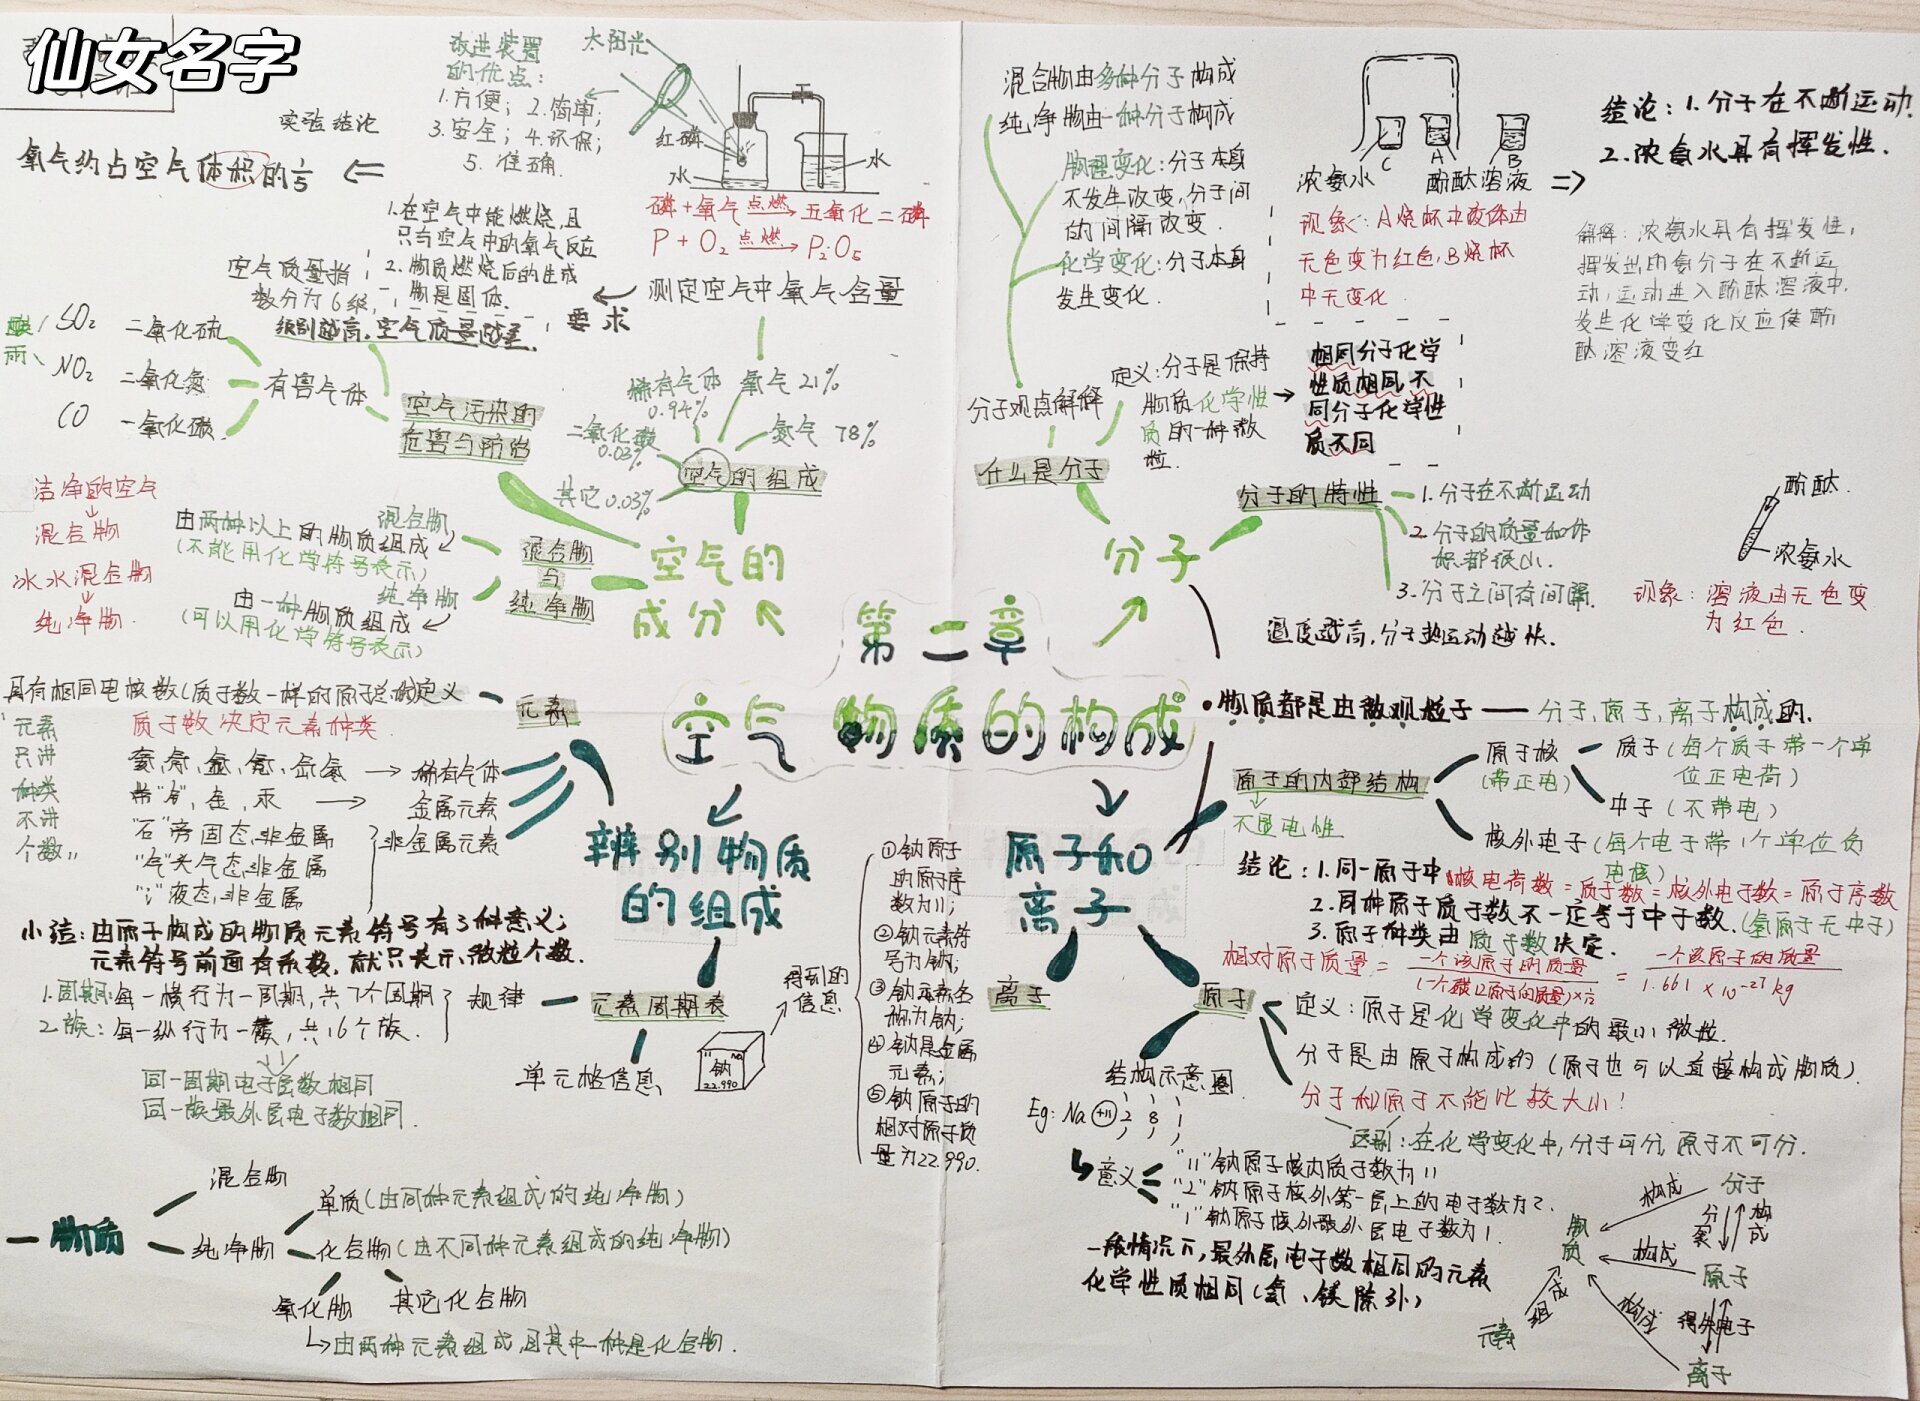 仙女名字
改进装置
的优点：
1.方便；2.简单；
3.安全；4.环保；
5.准确.
太阳光
红磷
水
水
磷+氧气 点燃 五氧化二磷
P + O₂ 点燃 P₂O₅
实验结论
氧气约占空气体积的1/5
1.在空气中能燃烧,且
只与空气中的氧气反应
2.物质燃烧后的生成
物是固体.
要求
测定空气中氧气含量
空气质量指
数分为6级,
级别越高,空气质量越差.
酸
雨
SO₂ 二氧化硫
NO₂ 二氧化氮
CO 一氧化碳
有害气体
空气污染的
危害与防治
稀有气体
0.94%
氧气 21%
二氧化碳
0.03%
氮气 78%
其它0.03%
空气的组成
洁净的空气
混合物
冰水混合物
纯净物.
混合物
由两种以上的物质组成
(不能用化学符号表示)
纯净物
由一种物质组成
(可以用化学符号表示)
混合物
与
纯净物
空气的
成分
第二章
空气 物质的构成
混合物由多种分子构成
纯净物由一种分子构成
物理变化:分子本身
不发生改变,分子间
的间隔改变.
化学变化:分子本身
发生变化.
分子观点解释
定义:分子是保持
物质化学性
质的一种微
粒.
相同分子化学
性质相同,不
同分子化学性
质不同
什么是分子
分子
分子的特性
1.分子在不断运动
2.分子的质量和体
积都很小.
3.分子之间有间隔.
温度越高,分子热运动越快.
C
A
B
浓氨水
酚酞溶液
结论：1.分子在不断运动.
2.浓氨水具有挥发性.
现象:A烧杯中液体由
无色变为红色,B烧杯
中无变化.
解释:浓氨水具有挥发性,
挥发出的氨分子在不断运
动,运动进入酚酞溶液中,
发生化学变化反应使酚
酞溶液变红
酚酞.
浓氨水
现象:溶液由无色变
为红色.
具有相同电核数(质子数一样的原子总称 定义
元素
质子数决定元素种类.
"元素
只讲
种类
不讲
个数"
稀有气体
带"钅",金,汞
金属元素
"石"旁固态,非金属
"气"头气态,非金属
"氵"液态,非金属
非金属元素
小结:由原子构成的物质元素符号有3种意义;
元素符号前面有系数,就只表示微粒个数.
1.周期:每一横行为一周期,共7个周期
2.族:每一纵行为一族,共16个族.
规律
同一周期电子层数相同
同一族最外层电子数相同.
元素周期表
单元格信息
11 Na
钠
22.990
得到的
信息
辨别物质
的组成
①钠原子
的原子序
数为11;
②钠元素符
号为钠;
③钠元素名
称为钠;
④钠是金属
元素;
⑤钠原子的
相对原子质
量为22.990.
物质
混合物
纯净物
单质(由同种元素组成的纯净物)
化合物(由不同种元素组成的纯净物)
氧化物
其它化合物
由两种元素组成,且其中一种是化合物.
物质都是由微观粒子——分子,原子,离子构成的.
原子的内部结构
不显电性
原子核
(带正电)
质子(每个质子带一个单
位正电荷)
中子(不带电)
核外电子(每个电子带1个单位负
电核)
结论:1.同一原子中 核电荷数=质子数=核外电子数=原子序数
2.同种原子质子数不一定等于中子数.(氢原子无中子)
3.原子种类由质子数决定.
相对原子质量 = 一个该原子的质量/(一个碳12原子的质量)×1/12 = 一个该原子的质量/1.661×10⁻²⁷kg
原子和
离子
离子
原子
定义:原子是化学变化中的最小微粒.
分子是由原子构成的(原子也可以直接构成物质).
分子和原子不能比较大小!
区别:在化学变化中,分子可分,原子不可分.
结构示意图
Eg: Na +11 2 8 1
意义
"11"钠原子核内质子数为11
"2"钠原子核外第一层上的电子数为2.
"1"钠原子核外最外层电子数为1.
一般情况下,最外层电子数相同的元素
化学性质相同(氦、镁除外)
物质
构成
分子
分裂
构成
构成
原子
得失电子
构成
离子
组成
元素